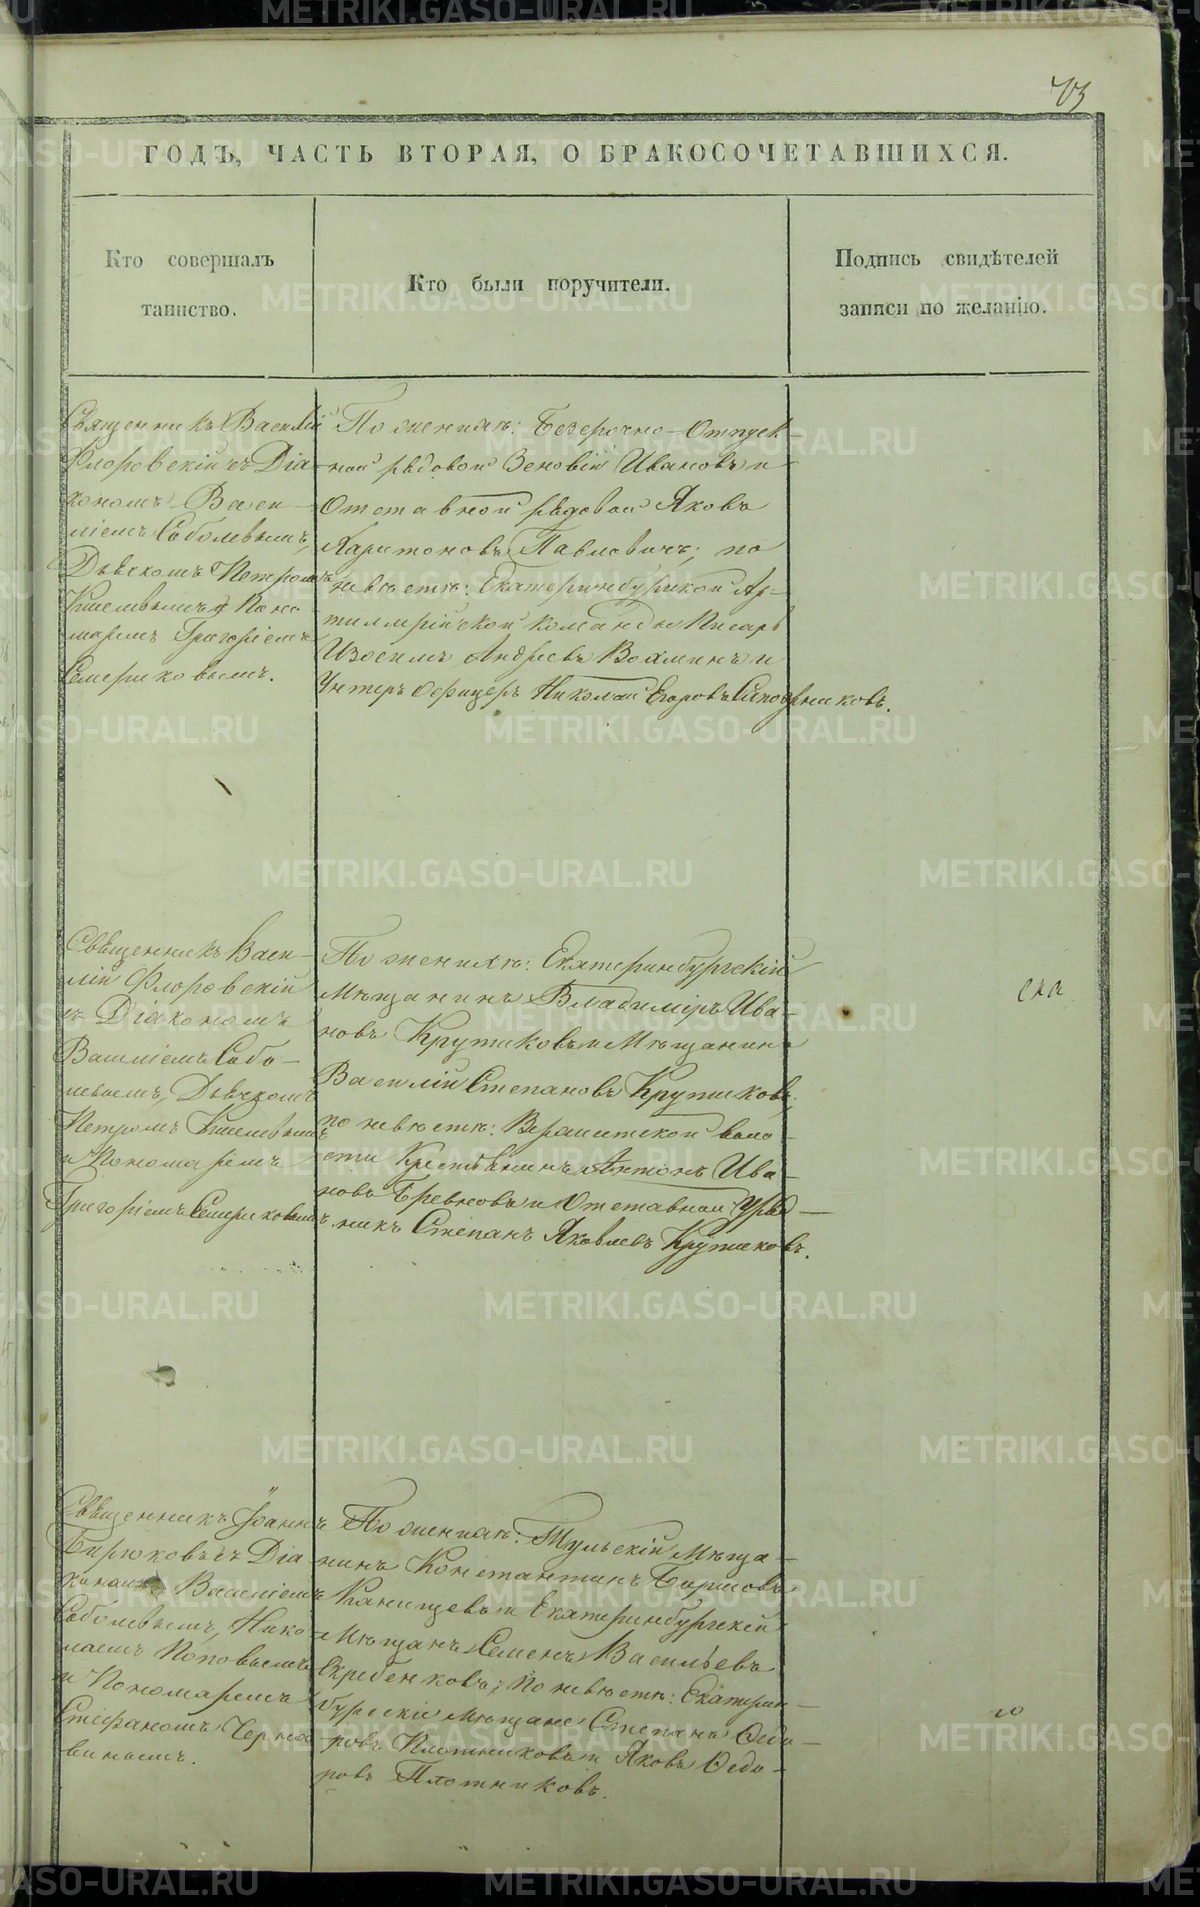 73
ГОДЪ, ЧАСТЬ ВТОРАЯ, О БРАКОСОЧЕТАВШИХСЯ.
Кто совершалъ
таинство.
Кто были поручители.
Подпись свидѣтелей
записи по желанію.
Священникъ Василій
Флоровскій съ Діа-
кономъ Васи-
ліемъ Соболевымъ,
Дьячкомъ Петромъ
Киселевымъ и Поно
маремъ Григоріемъ
Семериковымъ.
По женихѣ: Безсрочно-Отпуск-
ной рядовой Зеновій Ивановъ и
Отставной рядовой Яковъ
Харитоновъ Павловичъ; по
невѣстѣ: Екатеринбургской Ар-
тиллрійской команды Писарь
Изосимъ Андреевъ Вяхминъ и
Унтеръ Офицеръ Николай Егоровъ
Священникъ Васи-
лій Флоровскій
съ Діакономъ
Василіемъ Собо-
левымъ, Дьячкомъ
Петромъ Киселевымъ
и Пономаремъ
Григоріемъ Семериковымъ
По женихѣ: Екатеринбургскій
Мѣщанинъ Владиміръ Ива-
новъ Крутиковъ и Мѣщанинъ
Василій Степановъ Крутиковъ,
по невѣстѣ: волo-
сти Крестьянинъ Антонъ Ива-
новъ Бревновъ и Отставной Уряд-
никъ Степанъ Яковлевъ Крутиковъ.
Священникъ Іоаннъ
Бирюковъ съ Діа-
кономъ Василіемъ
Соболевымъ, Нико-
лаемъ Поповымъ
и Пономаремъ
Стефаномъ Черно
винымъ.
По женихѣ: Тульскій Мѣща-
нинъ Константинъ Борисовъ
Каницевъ и Екатеринбургскій
Мѣщанъ Семенъ Васильевъ
Скребенковъ; По невѣстѣ: Екатерин-
бургскіе Мѣщане Степанъ Ѳедо-
ровъ Плотниковъ и Яковъ Ѳедо-
ровъ Плотниковъ.
METRIKI.GASO-URAL.RU